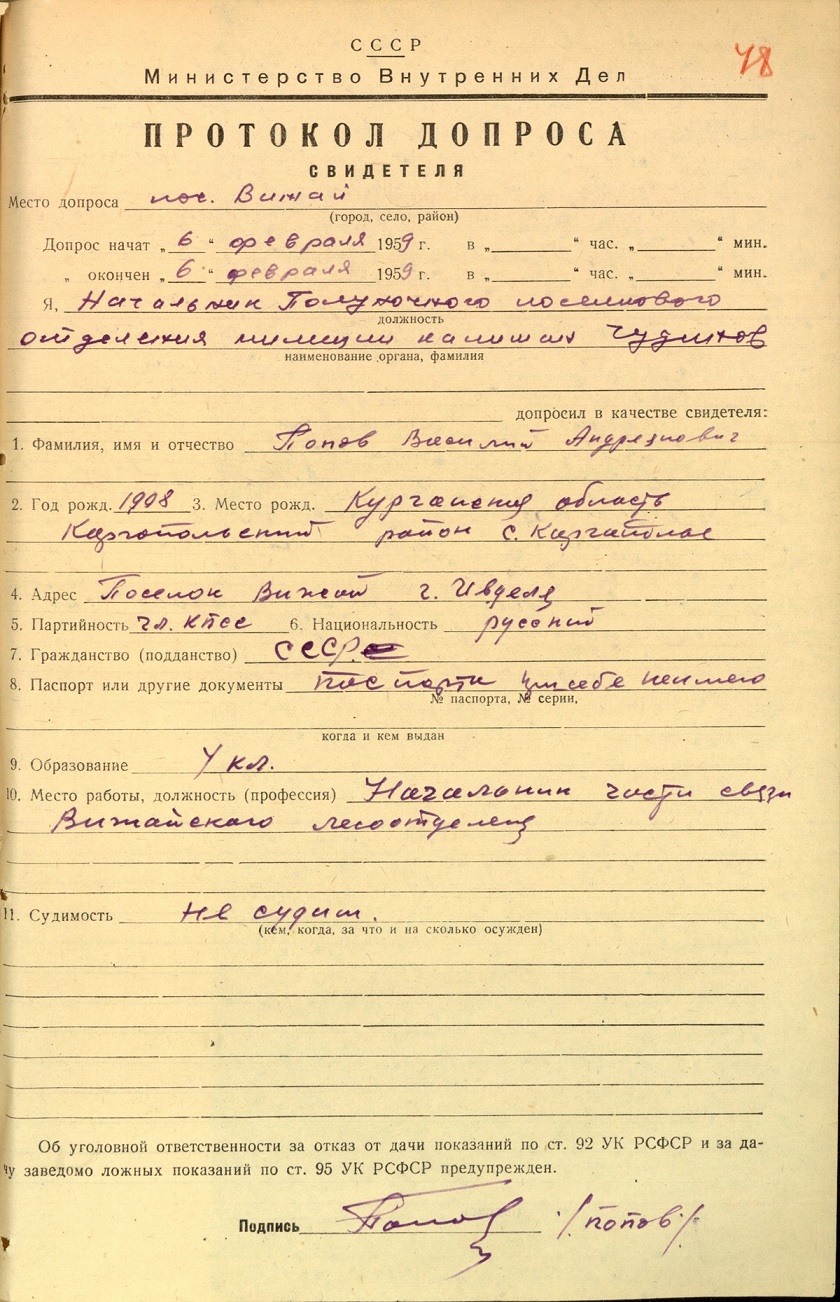 48
СССР
Министерство Внутренних Дел
ПРОТОКОЛ ДОПРОСА
СВИДЕТЕЛЯ
Место допроса пос. Вижай
(город, село, район)
Допрос начат „ 6 “ февраля 1959 г. в „ “ час. „ “ мин.
„ окончен „ 6 “ февраля 1959 г. в „ “ час. „ “ мин.
Я, Начальник Полуночного поселкового
должность
отделения милиции капитан Чудинов
наименование органа, фамилия
допросил в качестве свидетеля:
1. Фамилия, имя и отчество Попов Василий Андреянович
2. Год рожд. 1908 3. Место рожд. Курганская область
Каргопольский район с.
4. Адрес Поселок Вижай г. Ивделя
5. Партийность чл. КПСС 6. Национальность русский
7. Гражданство (подданство) СССР
8. Паспорт или другие документы паспорта при себе неимею
№ паспорта, № серии,
когда и кем выдан
9. Образование 4 кл.
10. Место работы, должность (профессия) Начальник части связи
Вижайского лесоотделения
11. Судимость не судим.
(кем, когда, за что и на сколько осужден)
Об уголовной ответственности за отказ от дачи показаний по ст. 92 УК РСФСР и за да-
чу заведомо ложных показаний по ст. 95 УК РСФСР предупрежден.
Подпись Попов /попов/